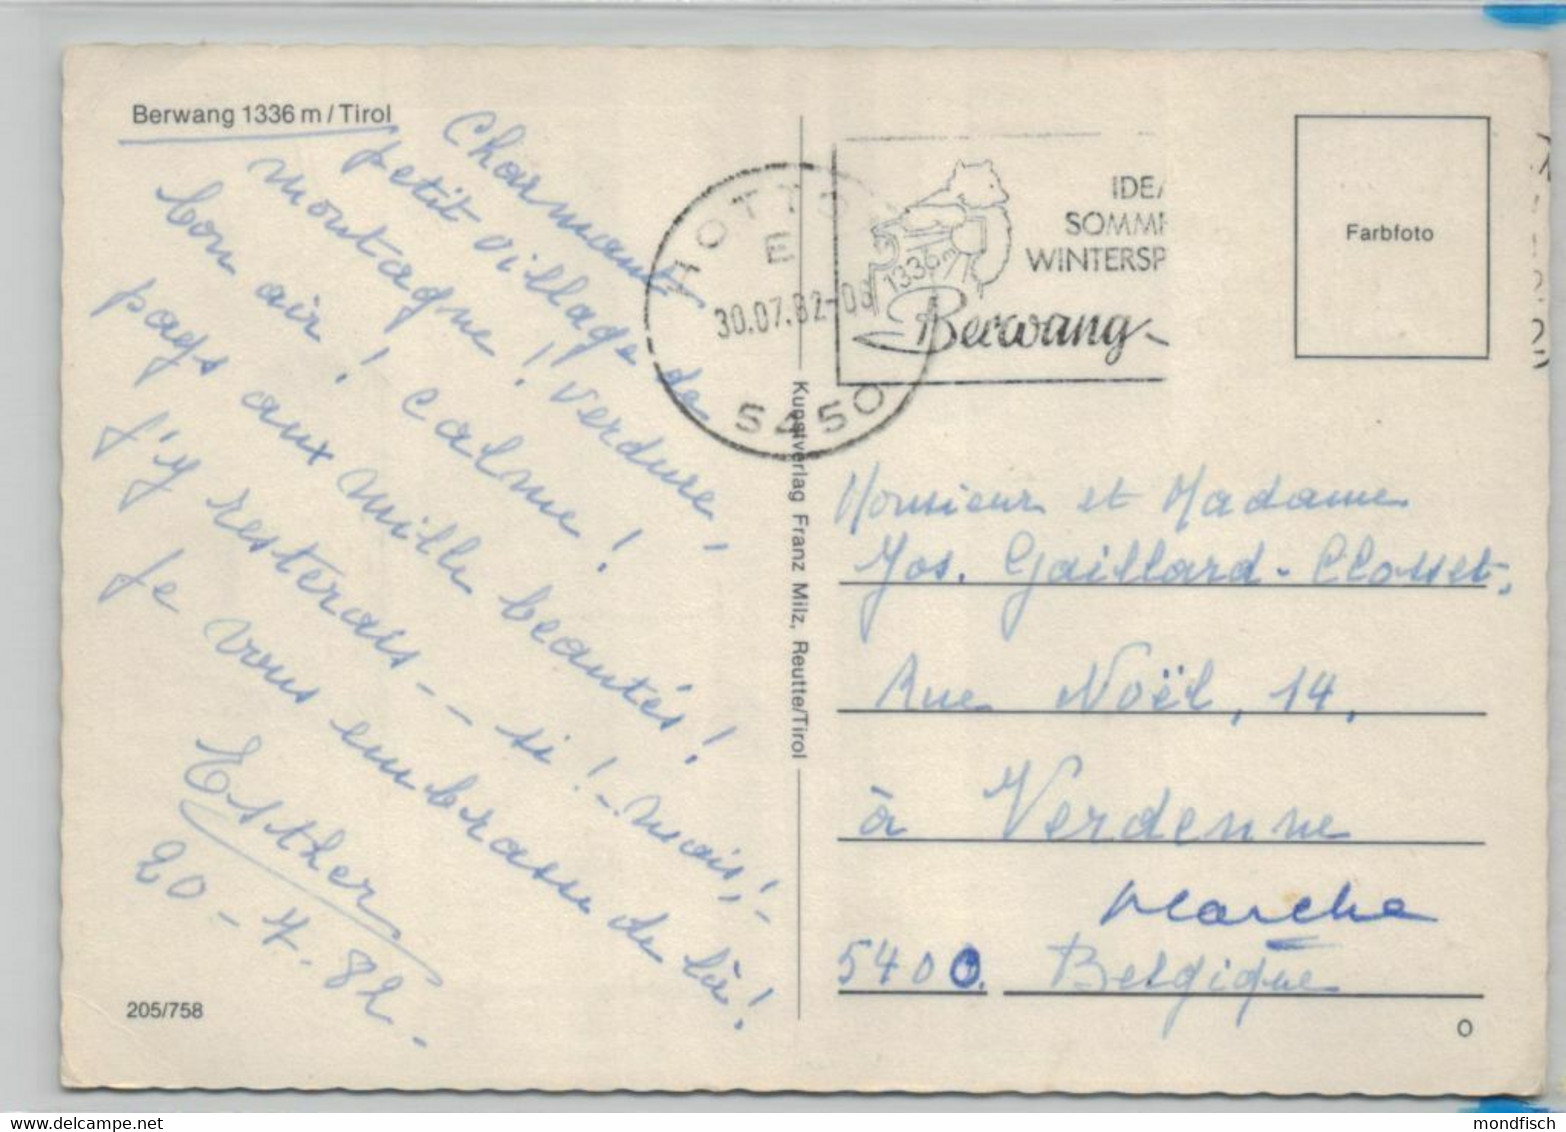 Berwang 1336 m / Tirol
Charmant
petit village de
montagne ! Verdure,
bon air ! Calme !
pays aux mille beautés !
J'y resterais - - si ! - mais ! -
Je vous embrasse de là !
Esther
20 - 7 - 82 -
205/758
Kunstverlag Franz Milz, Reutte/Tirol
E
30.07.82-08
5450
IDEA
SOMME
WINTERSP
1336m
Berwang
Farbfoto
Monsieur et Madame
Jos. Gaillard - Closset,
Rue Noël, 14,
à Verdenne
Marche
5400. Belgique
O
mondfisch